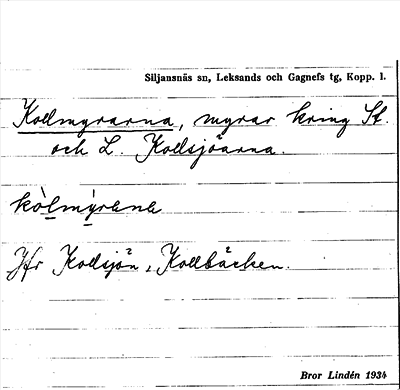 Siljansnäs sn, Leksands och Gagnefs tg, Kopp. l.
Kollmyrarna, myrar kring St.
och L. Kollsjöarna.
kòlmýrana
Jfr Kollsjön, Kollbäcken.
Bror Lindén 1934